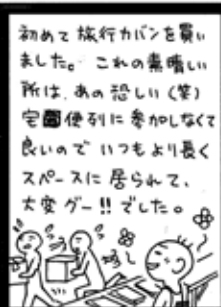 初めて旅行カバンを買い
ました。これの素晴しい
所は、あの恐しい(笑)
宅便列に参加しなくて
良いので いつもより長く
スペースに居られて、
大変グー!!でした。